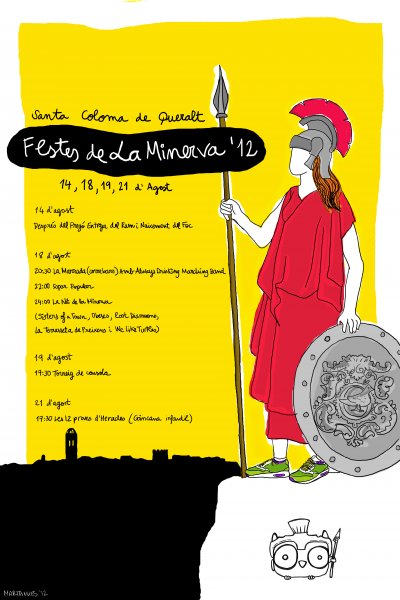 Santa Coloma de Queralt
Festes de La Minerva '12
14, 18, 19, 21 d'Agost
14 d'agost
Després del Pregó Entrega del Ram i Naixement del Foc
18 d'agost
20:30 La Mercada (cercabars) Amb Always Drinking Marching Band
22:00 Sopar Popular
24:00 La Nit de la Minerva
(Sisters of a Train, Root
La Terrasseta de Preixens i We Like Turtles)
19 d'agost
19:30 Torneig de consola
21 d'agost
17:30 Les 12 proves d'Heracles (Gimcana infantil)
'12